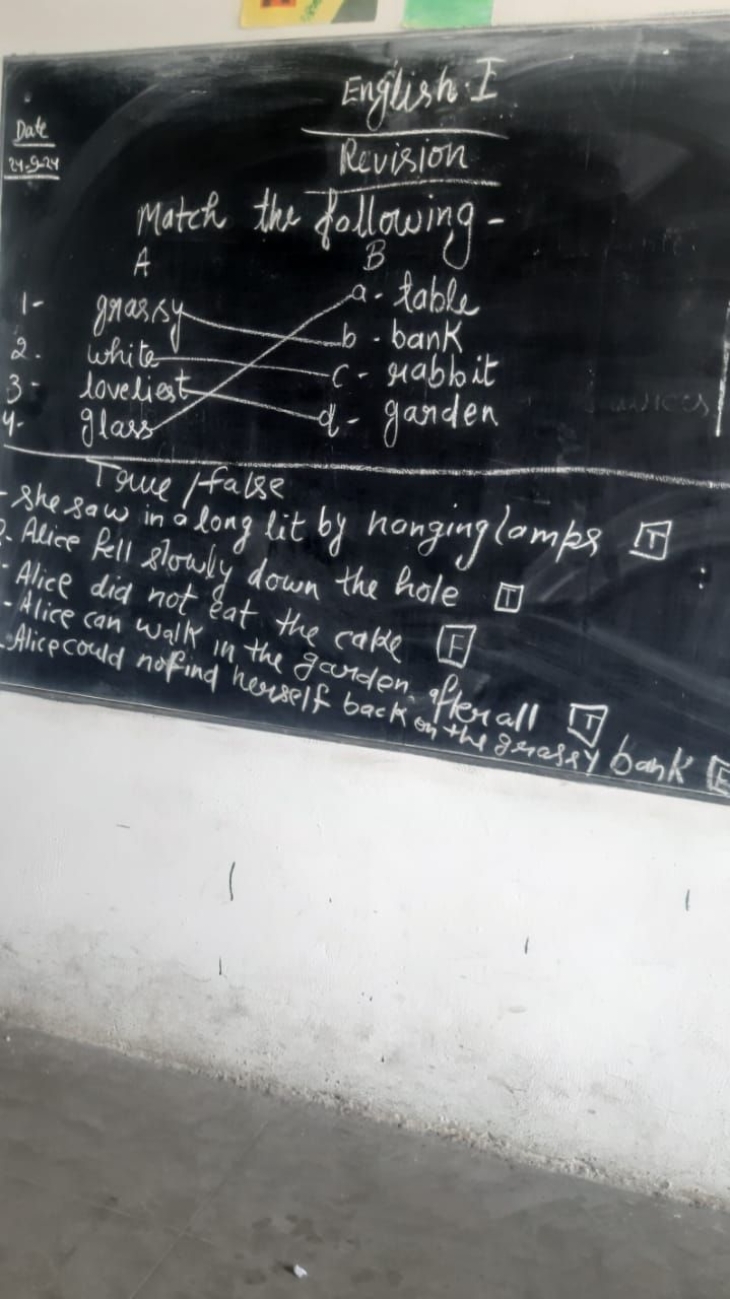 English-I
Date
24-9-24
Revision
Match the following-
A B
1- grassy a- table
2. white b- bank
3- loveliest c- rabbit
4- glass d- garden
True/false
- she saw in a long lit by hanging lamps T
2. Alice fell slowly down the hole T
- Alice did not eat the cake F
- Alice can walk in the garden. after all T
. Alice could not find herself back on the grassy bank F